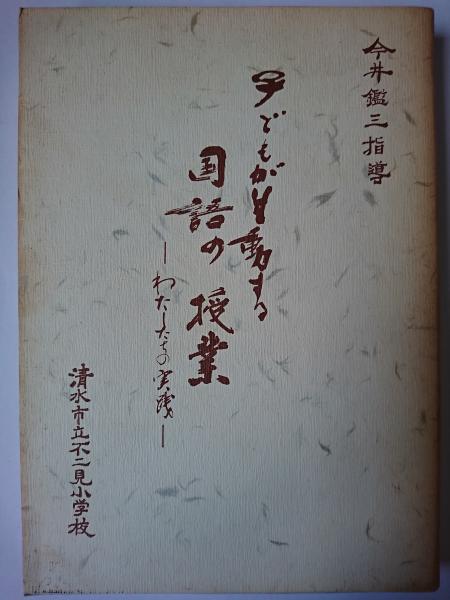 今井鑑三指導
子どもが生動する
国語の授業
―わたしたちの実践―
清水市立不二見小学校